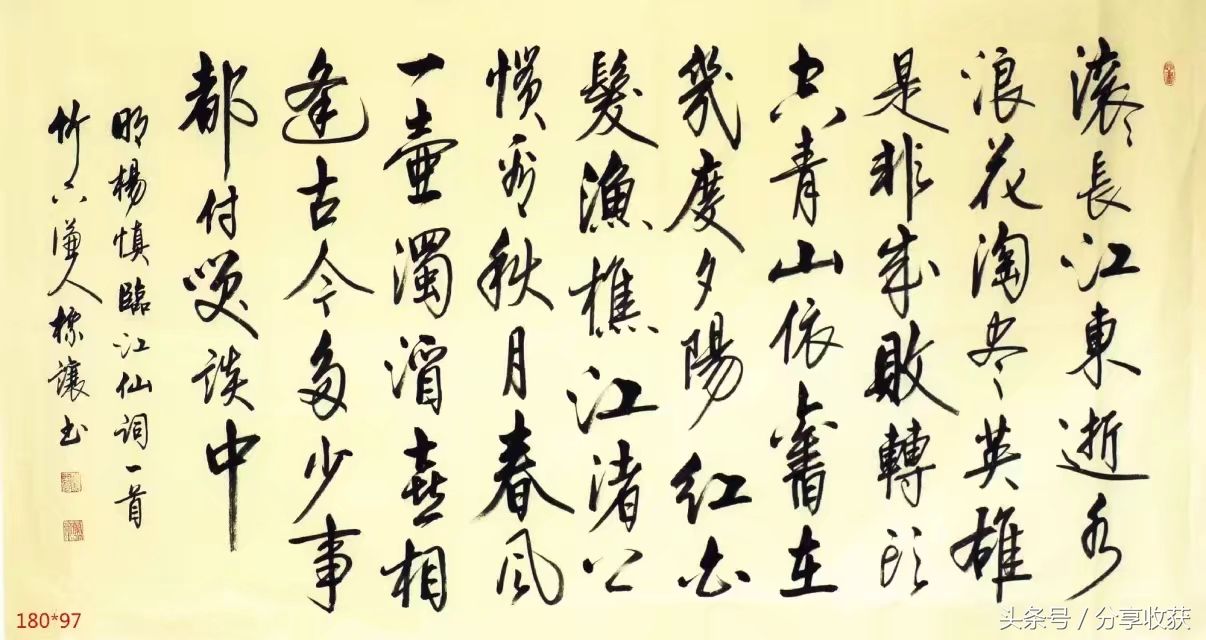 滚々長江東逝水
浪花淘尽英雄
是非成敗轉頭
空青山依舊在
幾度夕陽紅白
髮漁樵江渚上
慣看秋月春風
一壺濁酒喜相
逢古今多少事
都付笑談中
明楊慎臨江仙詞一首
竹人讓书
180*97
头条号 / 分享收获